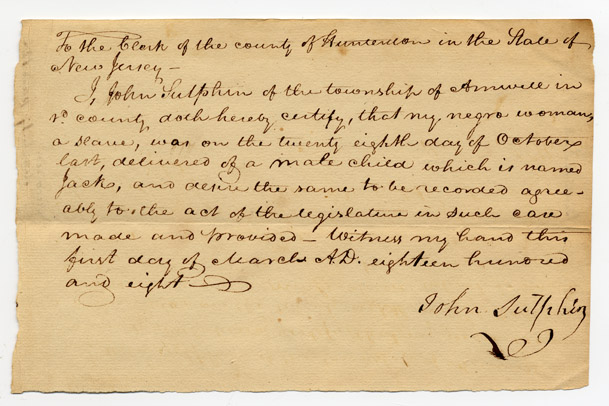 To the Clerk of the county of Hunterdon in the State of
New Jersey –
I, John Sutphin of the township of Amwell in
sd. county doth hereby certify, that my negro woman,
a slave, was on the twenty eighth day of October
last, delivered of a male child which is named
Jack, and desire the same to be recorded agree-
ably to the act of the legislature in such case
made and provided – Witness my hand this
first day of March A.D. eighteen hundred
and eight
John Sutphin